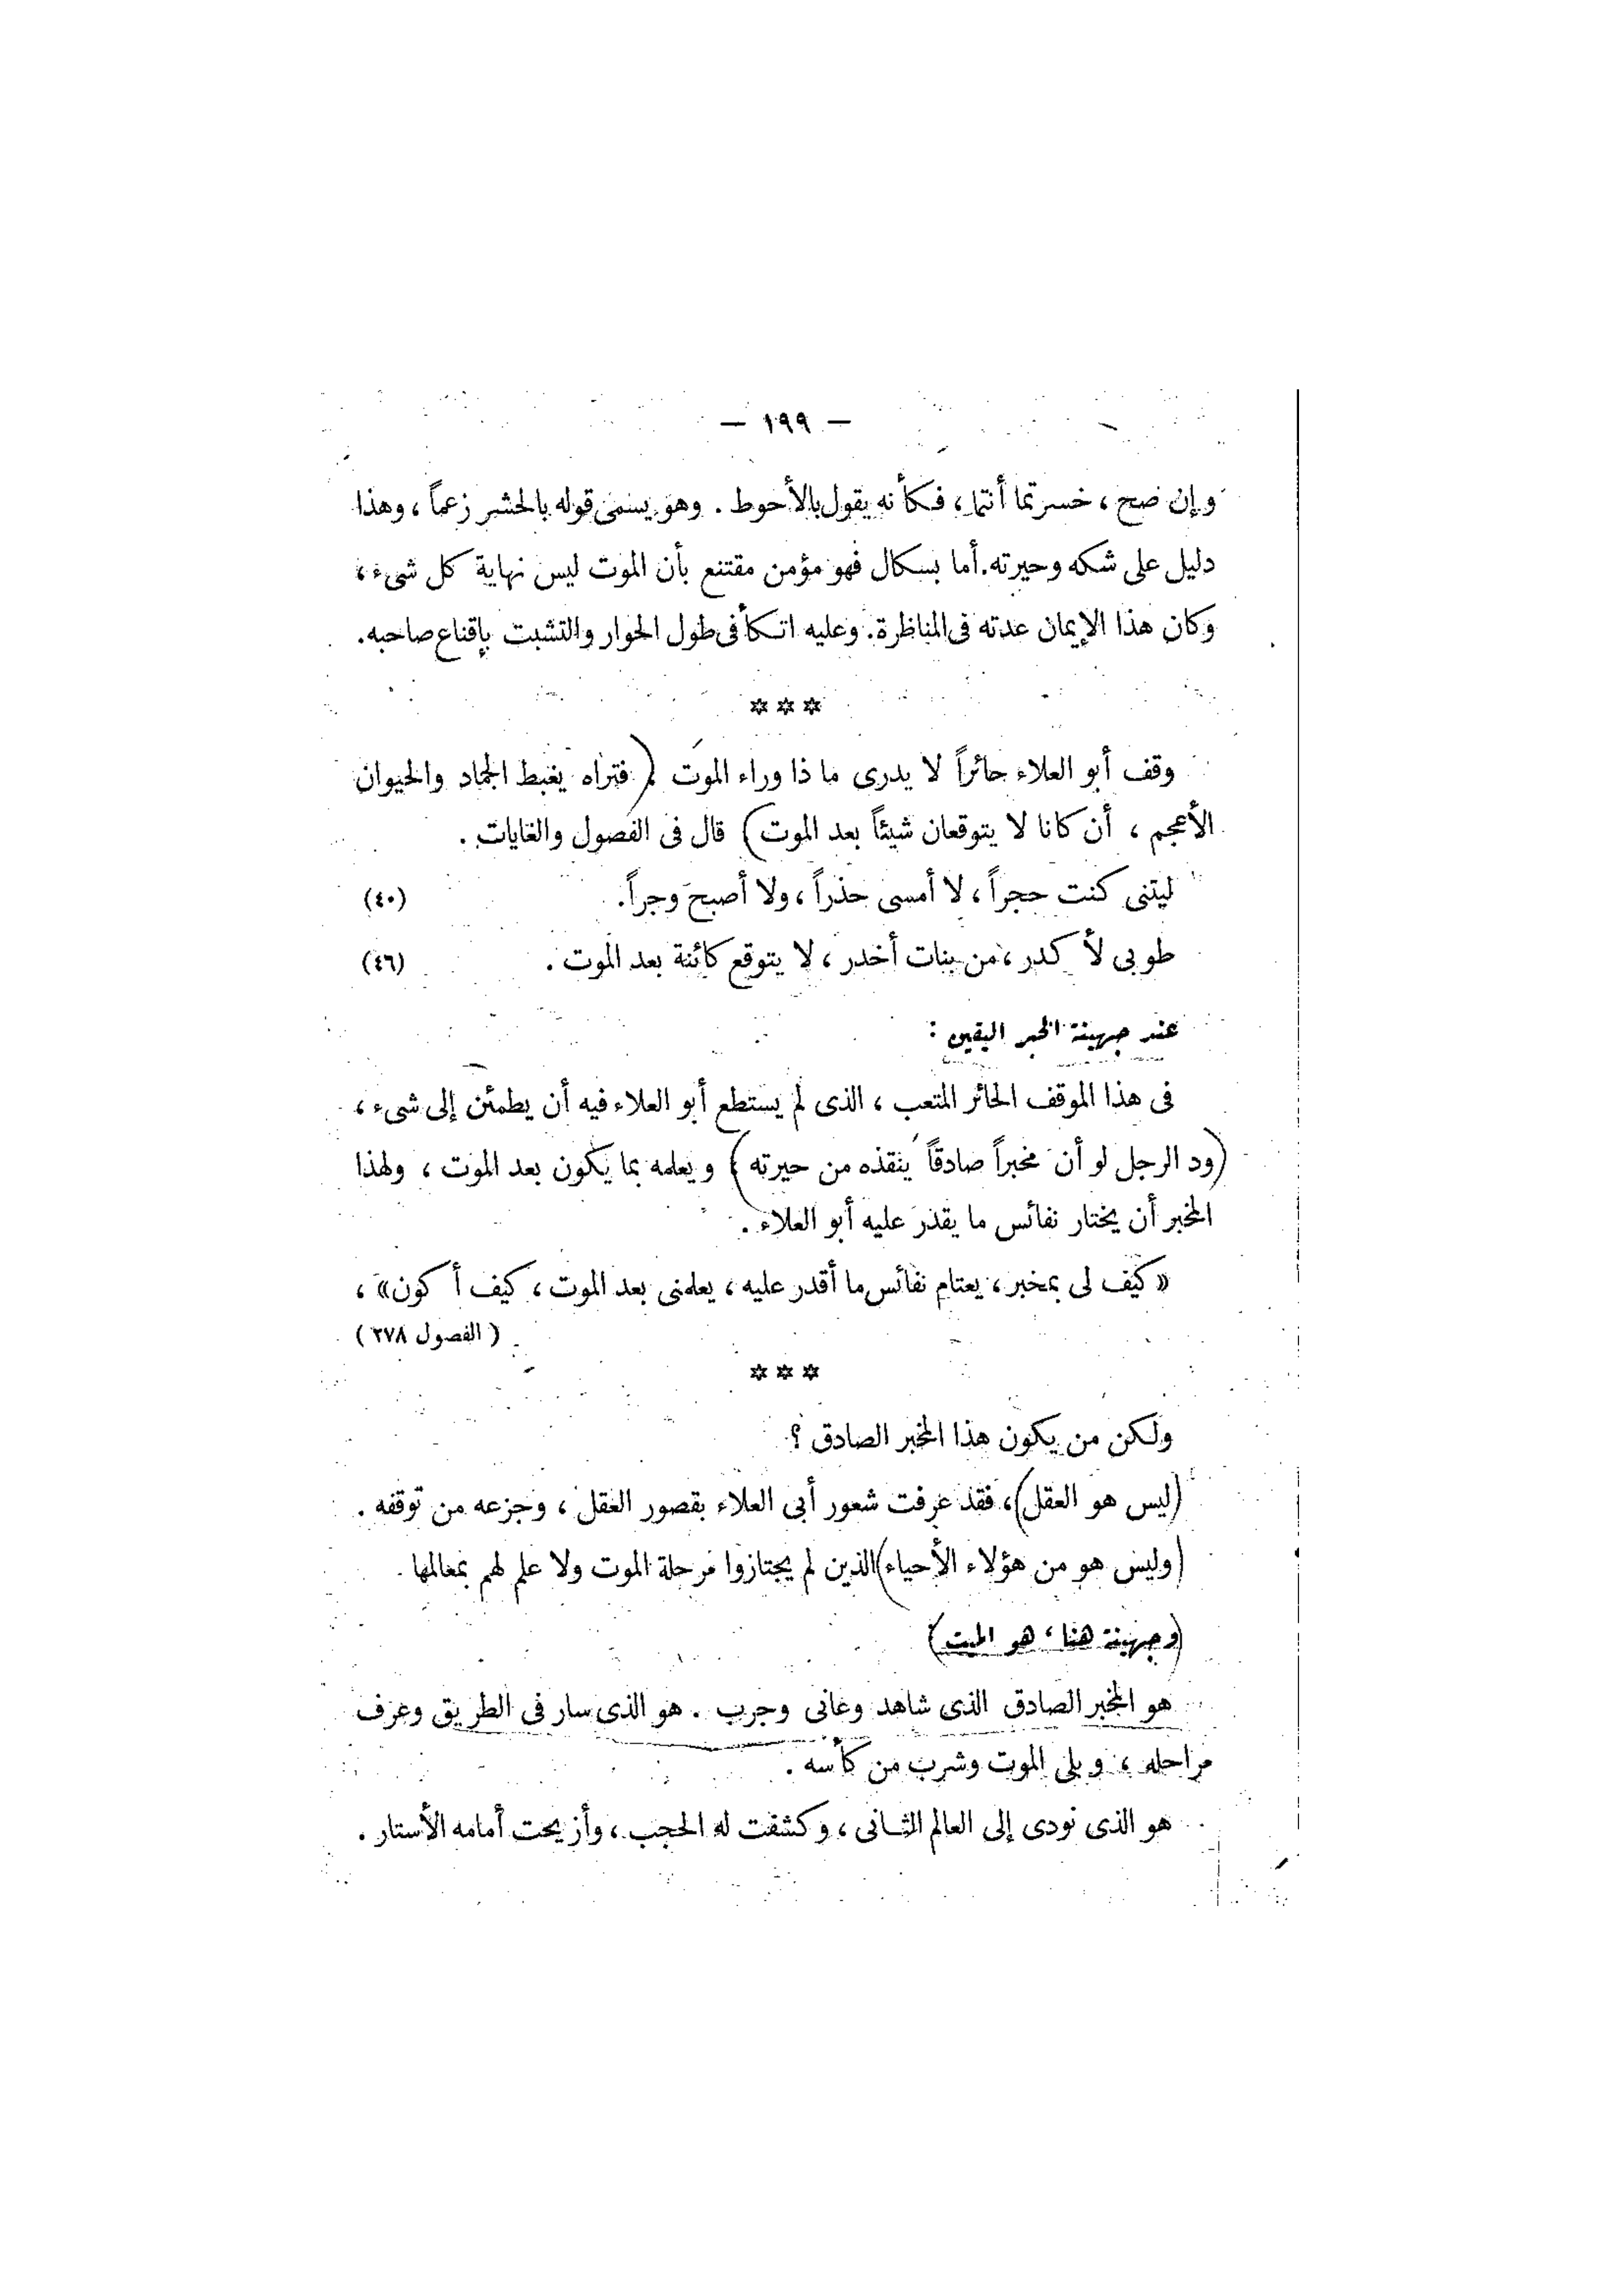 — ١٩٩ —
وإن صح ، خسرتما أنتما ، فكأنه يقول بالأحوط . وهو يسمى قوله بالحشر زعماً ، وهذا
دليل على شكه وحيرته. أما بسكال فهو مؤمن مقتنع بأن الموت ليس نهاية كل شىء ،
وكان هذا الإيمان عدته فى المناظرة. وعليه اتكأ فى طول الحوار والتشبث بإقناع صاحبه.
✲✲✲
وقف أبو العلاء حائراً لا يدرى ما ذا وراء الموت ( فتراه يغبط الجماد والحيوان
الأعجم ، أن كانا لا يتوقعان شيئاً بعد الموت) قال فى الفصول والغايات .
ليتنى كنت حجراً ، لا أمسى حذراً ، ولا أصبح وجراً. (٤٠)
طوبى لأكدر ، من بنات أخدر ، لا يتوقع كائنة بعد الموت . (٤٦)
عند جهينة الخبر اليقين :
فى هذا الموقف الحائر المتعب ، الذى لم يستطع أبو العلاء فيه أن يطمئن إلى شىء ،
(ود الرجل لو أن مخبراً صادقاً ينقذه من حيرته) ويعلمه بما يكون بعد الموت ، ولهذا
المخبر أن يختار نفائس ما يقدر عليه أبو العلاء .
« كيف لى بمخبر ، يعتام نفائس ما أقدر عليه ، يعلمنى بعد الموت ، كيف أكون» ،
( الفصول ٢٧٨ )
✲✲✲
ولكن من يكون هذا المخبر الصادق ؟
(ليس هو العقل) ، فقد عرفت شعور أبى العلاء بقصور العقل ، وجزعه من توقفه .
(وليس هو من هؤلاء الأحياء) الذين لم يجتازوا مرحلة الموت ولا علم لهم بمعالمها .
(وجهينة هنا ، هو الميت)
هو المخبر الصادق الذى شاهد وعانى وجرب . هو الذى سار فى الطريق وعرف
مراحله ، وبلى الموت وشرب من كأسه .
هو الذى نودى إلى العالم الثانى ، وكشفت له الحجب ، وأزيحت أمامه الأستار .